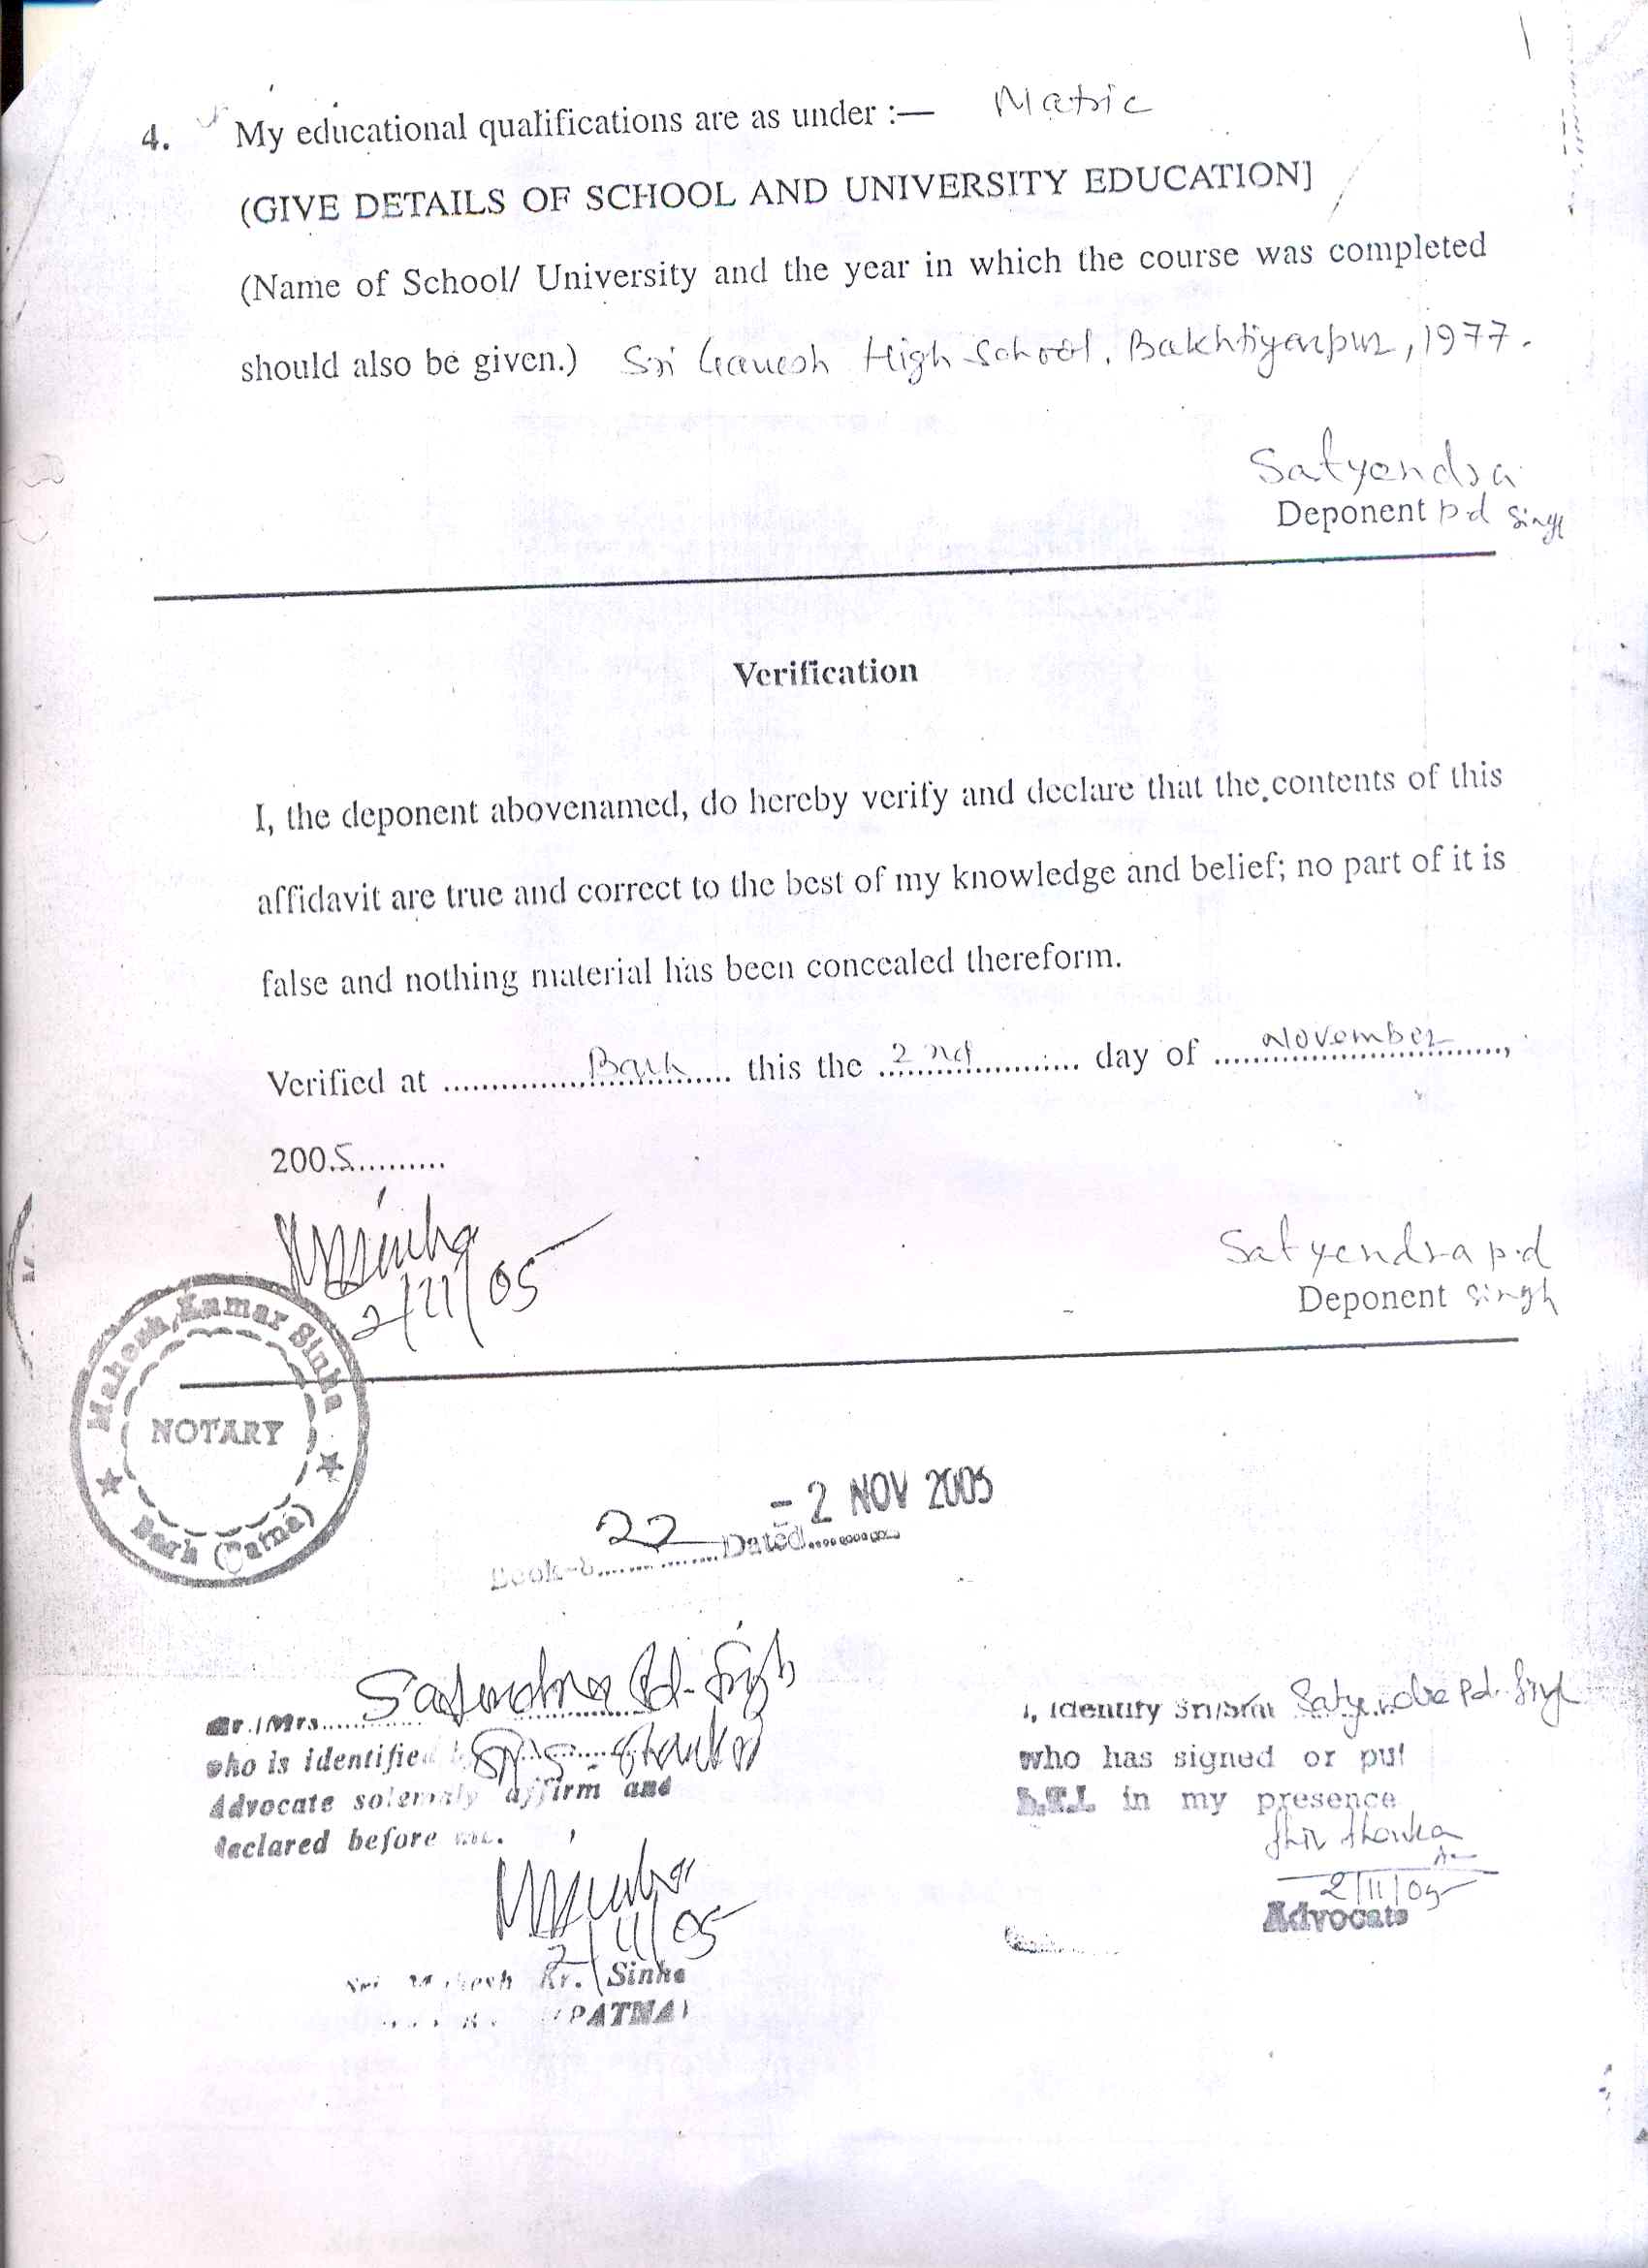 4. My educational qualifications are as under :— Matric
(GIVE DETAILS OF SCHOOL AND UNIVERSITY EDUCATION]
(Name of School/ University and the year in which the course was completed
should also be given.) Sri Ganesh High School, Bakhtiyarpur, 1977.
Satyendra
Deponent Pd Singh
Verification
I, the deponent abovenamed, do hereby verify and declare that the contents of this
affidavit are true and correct to the best of my knowledge and belief; no part of it is
false and nothing material has been concealed thereform.
Verified at .................... Barh ........ this the 2nd ............ day of ...... November ......,
2005..........
MKSinha
2/11/05
Satyendra pd
Deponent Singh
Mahesh Kumar Sinha
NOTARY
Barh (Patna)
-2 NOV 2005
22 Dated..........
Mr./Mrs...... Satyendra Pd. Singh
who is identified
Advocate solemnly affirm and
declared before me.
MKSinha
2/11/05
Sri Mahesh Kr. Sinha
(PATNA)
I, Identify Sri/Smt Satyendra Pd. Singh
who has signed or put
L.T.I. in my presence
Shiv Shankar
2/11/05
Advocate